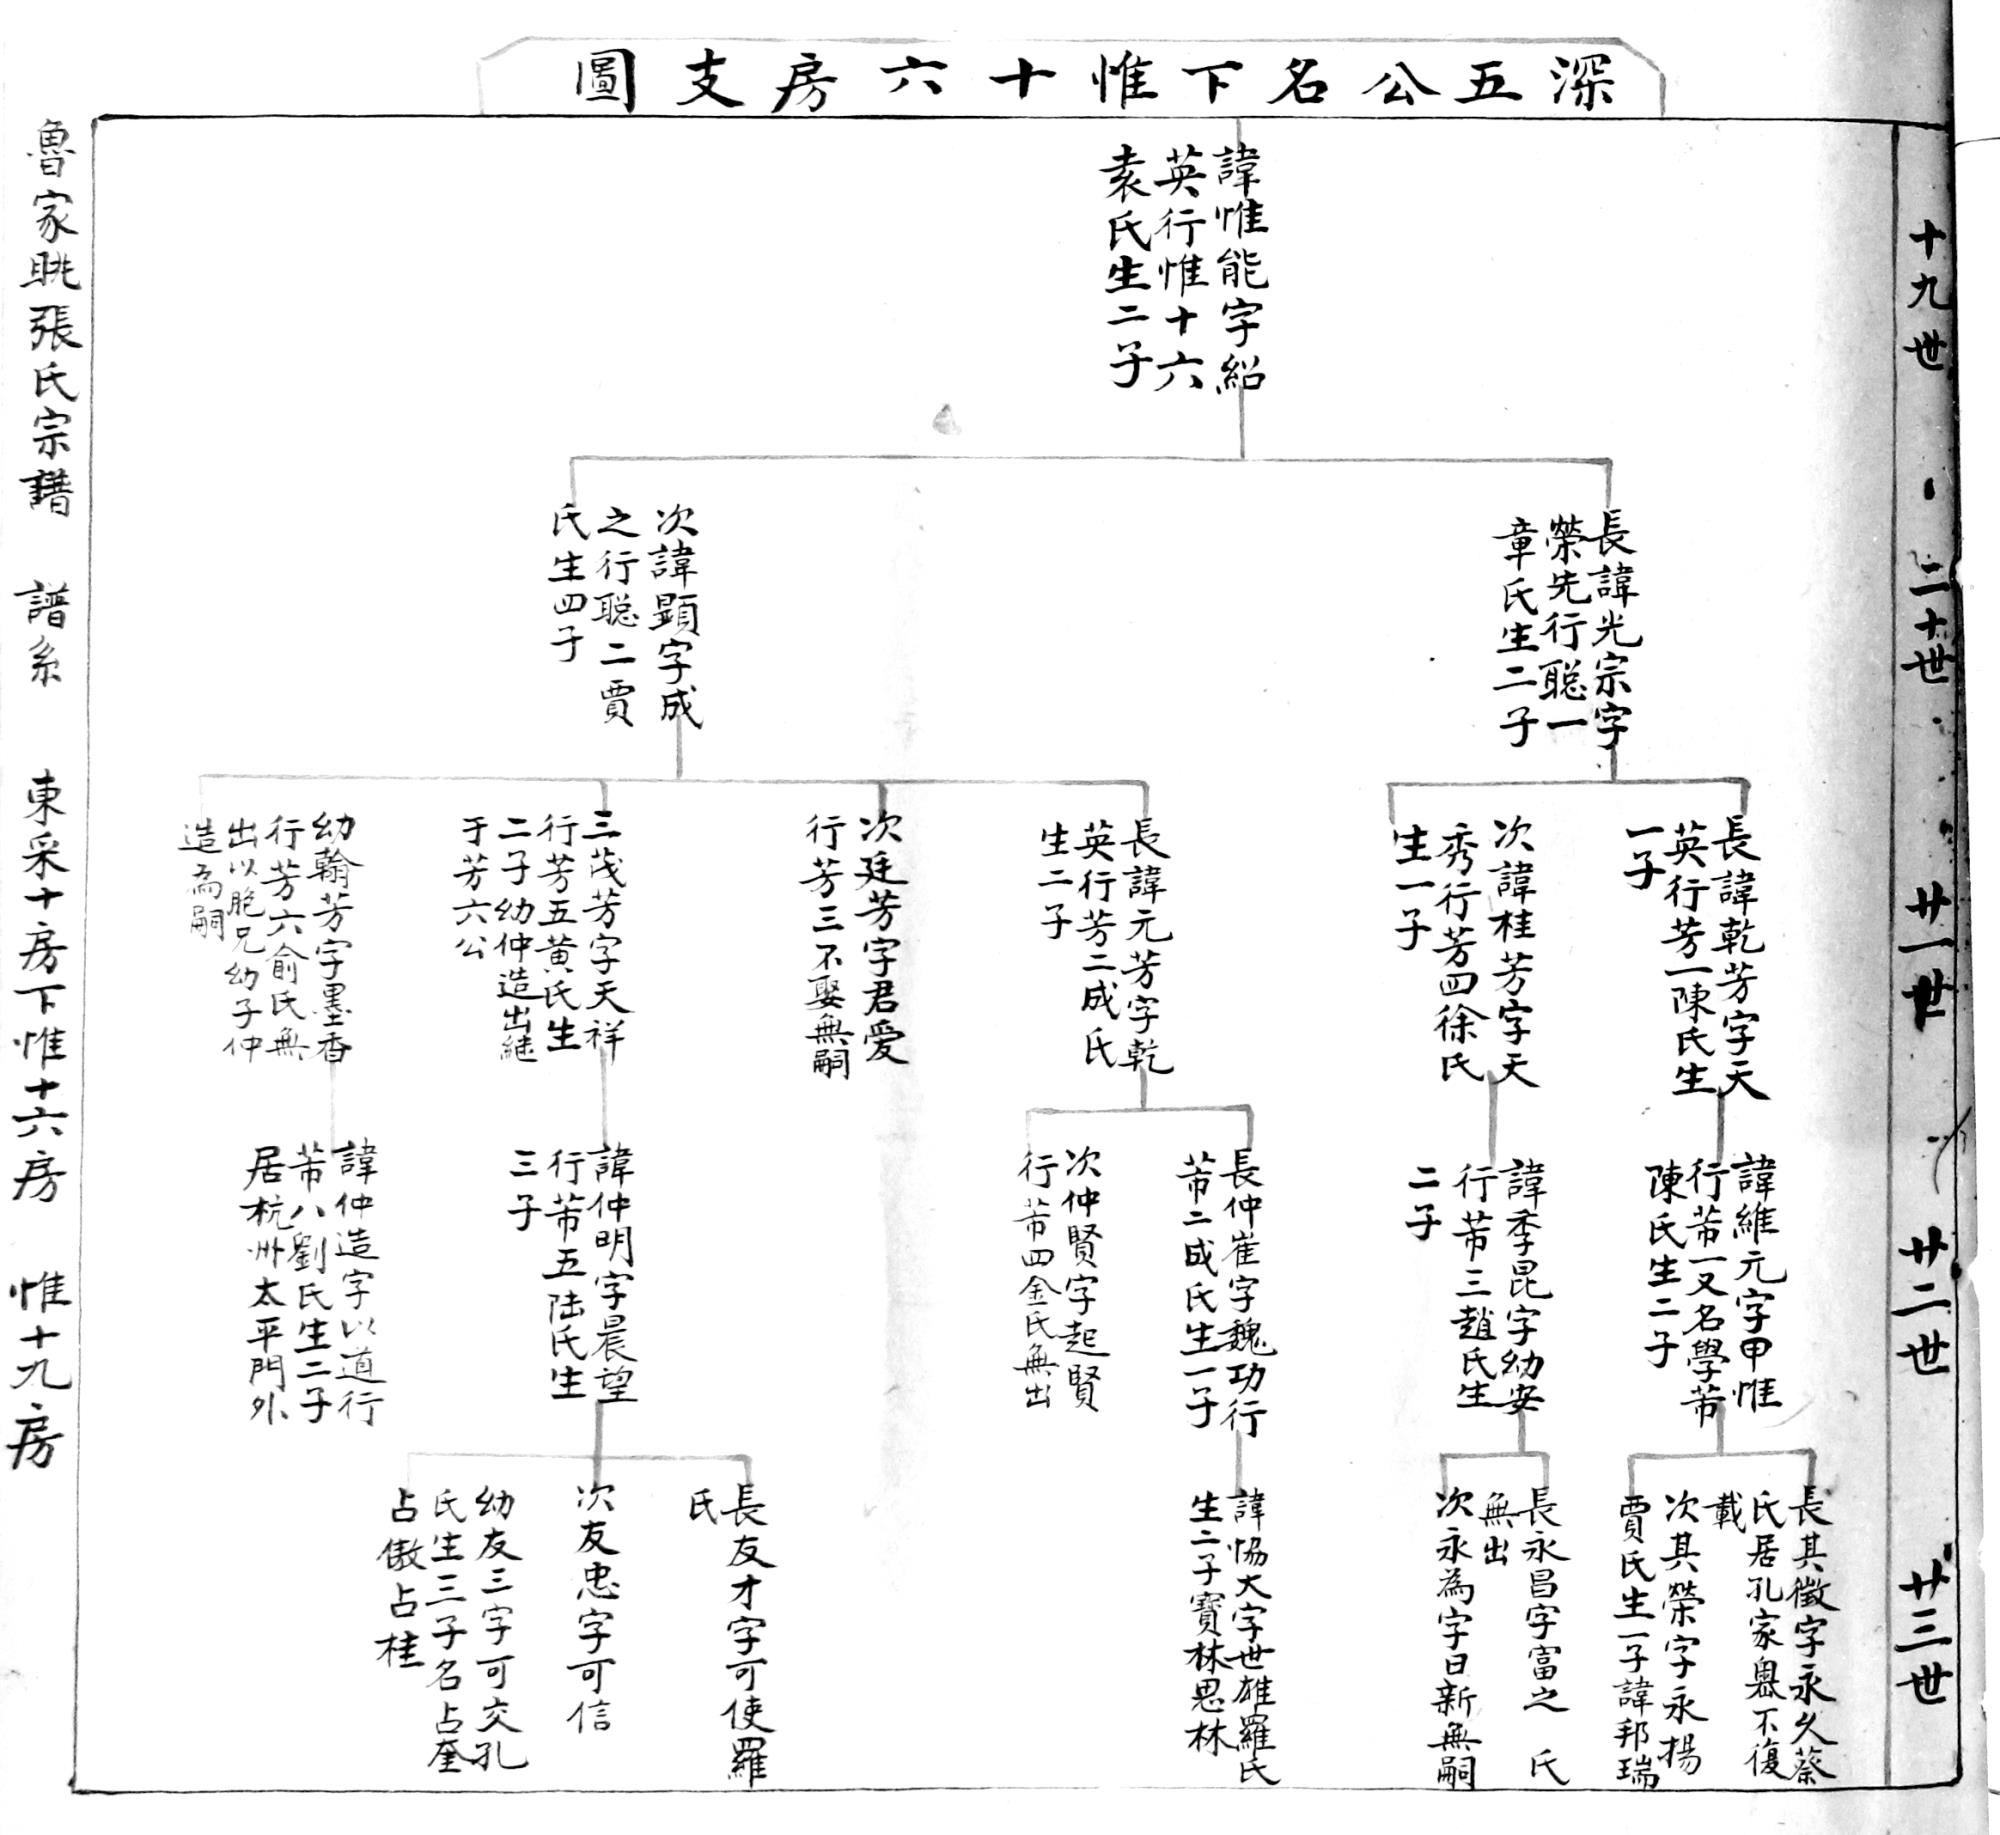 深五公名下惟十六房支圖
十九世
二十世
廿一世
廿二世
廿三世
諱惟能字紹
英行惟十六
袁氏生二子
長諱光宗字
榮先行聰一
章氏生二子
次諱顕字成
之行聡二賈
氏生四子
長諱乾芳字天
英行芳一陳氏生
一子
次諱桂芳字天
秀行芳四徐氏
生一子
長諱元芳字乾
英行芳二成氏
生二子
次廷芳字君愛
行芳三不娶無嗣
三茂芳字天祥
行芳五黄氏生
二子幼仲造出継
于芳六公
幼翰芳字墨香
行芳六俞氏無
出以胞兄幼子仲
造為嗣
諱維元字甲惟
行芾一又名學芾
陳氏生二子
諱季昆字幼安
行芾三趙氏生
二子
長仲崔字魏功行
芾二成氏生一子
次仲賢字起賢
行芾四金氏無出
諱仲明字晨望
行芾五陆氏生
三子
諱仲造字以道行
芾八劉氏生二子
居杭州太平門外
長其徵字永久蔡
氏居孔家奧不復
載
次其榮字永揚
賈氏生一子諱邦瑞
長永昌字富之 氏
無出
次永為字日新無嗣
諱恊大字世雄羅氏
生二子寶林思林
長友才字可使羅
氏
次友忠字可信
幼友三字可交孔
氏生三子名占奎
占傲占桂
魯家眺張氏宗譜 譜系 東采十房下惟十六房 惟十九房